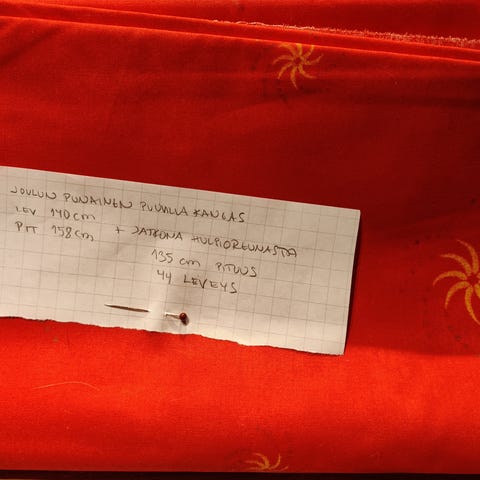 JOULUN PUNAINEN PUUVILLA KANGAS
LEV 140 cm
PIT 158 cm + JATKONA HULPIOREUNASTA
135 cm PITUUS
44 LEVEYS